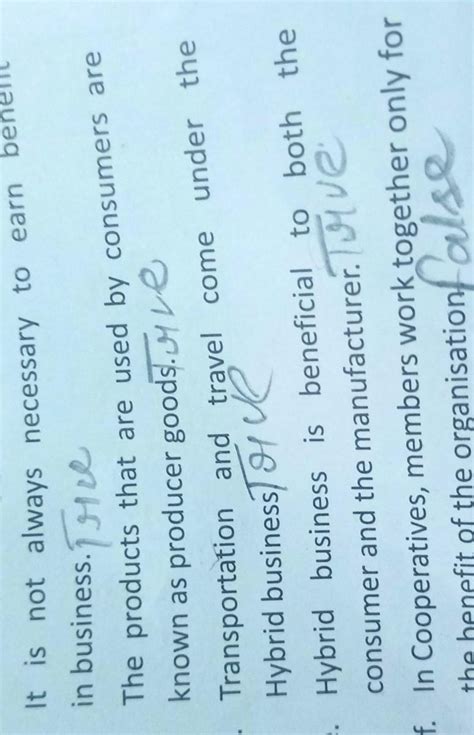 It is not always necessary to earn benefit
in business. True
The products that are used by consumers are
known as producer goods. True
Transportation and travel come under the
Hybrid business True
. Hybrid business is beneficial to both the
consumer and the manufacturer. True
f. In Cooperatives, members work together only for
the benefit of the organisation false